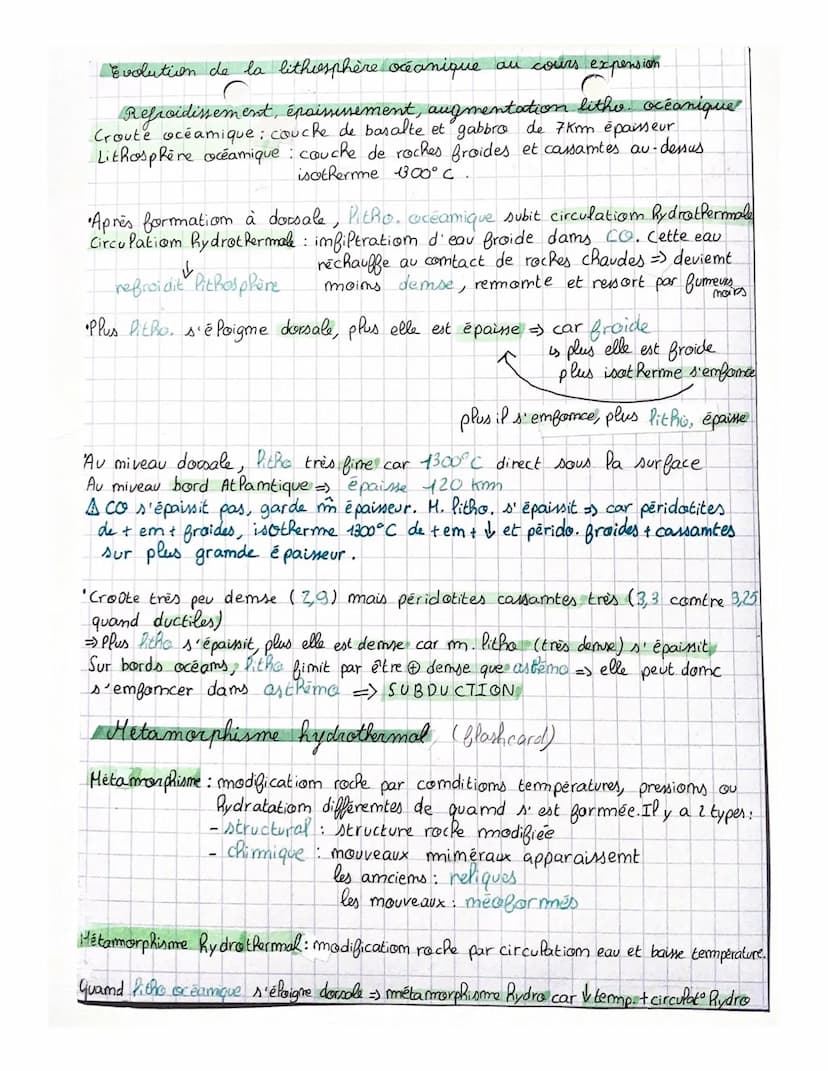 Evolution de la lithosphère océanique au cours expension
Refroidissement, épaississement, augmentation litho. océanique
Croute océanique : couche de basalte et gabbro de 7Km épaisseur
Lithosphère océanique : couche de roches froides et cassantes au-dessus
isotherme 1300°C.
•Après formation à dorsale, litho. océanique subit circulation hydrothermale
Circulation hydrothermale : infiltration d'eau froide dans CO. Cette eau
↓ réchauffe au contact de roches chaudes => devient
refroidit lithosphère moins dense, remonte et ressort par fumeurs
noirs
•Plus litho. s'éloigne dorsale, plus elle est épaisse => car froide
↳ plus elle est froide
plus isotherme s'enfonce
plus il s'enfonce, plus litho, épaisse
Au niveau dorsale, litho très fine car 1300°C direct sous la surface
Au niveau bord Atlantique => épaisse 120 km
⚠ CO s'épaissit pas, garde m̂ épaisseur. M. litho. s'épaissit => car péridotites
de + en + froides, isotherme 1300°C de + en + ↓ et pérido. froides + cassantes
sur plus grande épaisseur.
•Croûte très peu dense (2,9) mais péridotites cassantes très (3,3 contre 3,25
quand ductiles)
=> Plus litho s'épaissit, plus elle est dense car m. litho (très dense) s'épaissit
Sur bords océans, litho finit par être ⊕ dense que asthéno => elle peut donc
s'enfoncer dans asthéno => SUBDUCTION
Métamorphisme hydrothermal, (flashcard)
Métamorphisme : modification roche par conditions températures, pressions ou
hydratation différentes de quand s'est formée. Il y a 2 types :
- structural : structure roche modifiée
- chimique : nouveaux minéraux apparaissent
les anciens : reliques
les nouveaux : néoformés
Métamorphisme hydrothermal : modification roche par circulation eau et baisse température.
Quand litho océanique s'éloigne dorsale => métamorphisme hydro car ↓ temp. + circulat° hydro